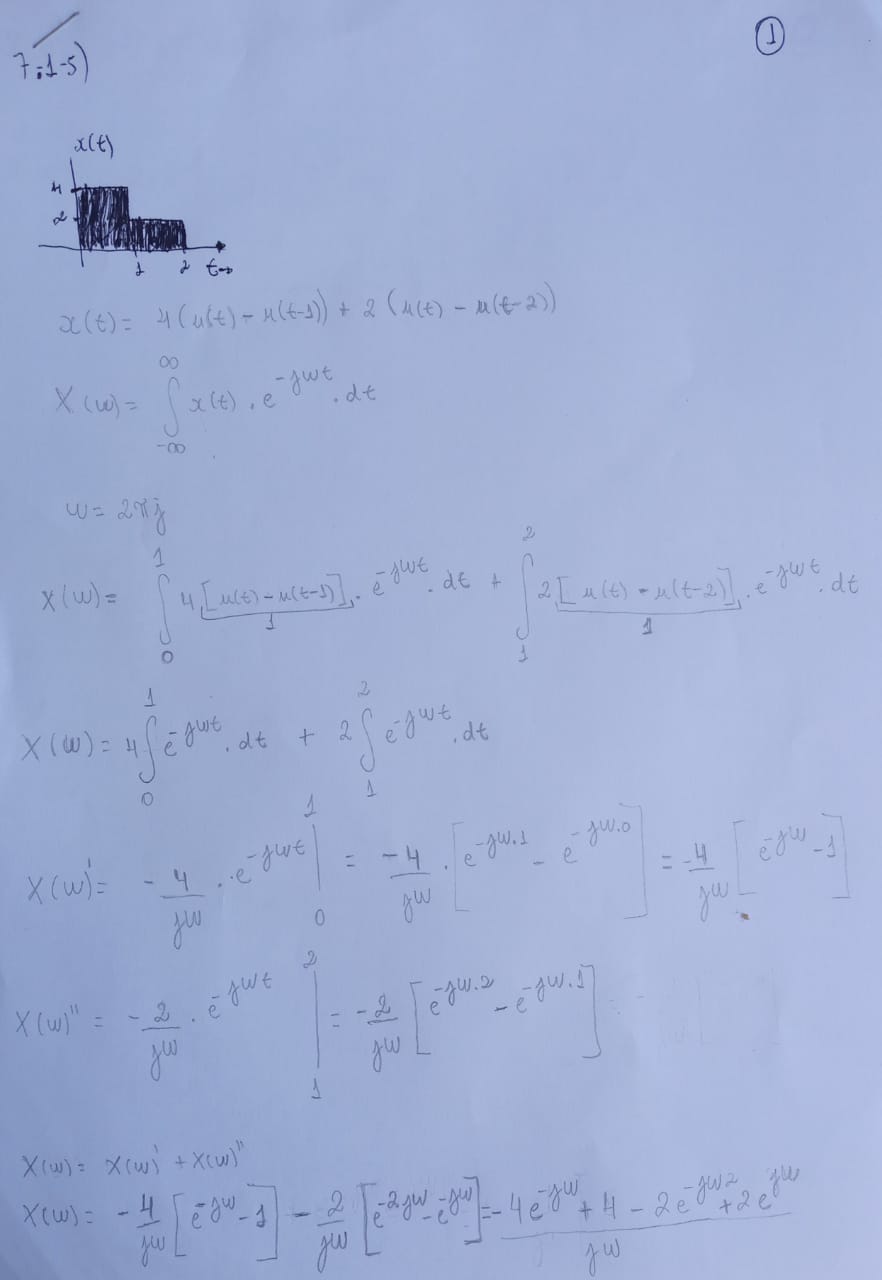 ①
7.1-5)
x(t)
4
2
1 2 t→
x(t) = 4(u(t) - u(t-1)) + 2(u(t) - u(t-2))
X(w) = ∫_{-∞}^{∞} x(t) . e^{-jwt} . dt
w = 2πj
X(w) = ∫_0^1 4[u(t) - u(t-1)] . e^{-jwt} . dt + ∫_1^2 2[u(t) - u(t-2)] . e^{-jwt} . dt
1 1
X(w) = 4∫_0^1 e^{-jwt} . dt + 2∫_1^2 e^{-jwt} . dt
X(w)' = -4/jw . e^{-jwt} |_0^1 = -4/jw . [e^{-jw.1} - e^{-jw.0}] = -4/jw [e^{-jw} - 1]
X(w)'' = -2/jw . e^{-jwt} |_1^2 = -2/jw [e^{-jw.2} - e^{-jw.1}]
X(w) = X(w)' + X(w)''
X(w) = -4/jw [e^{-jw} - 1] - 2/jw [e^{-2jw} - e^{-jw}] = (-4e^{-jw} + 4 - 2e^{-jw2} + 2e^{jw})/jw